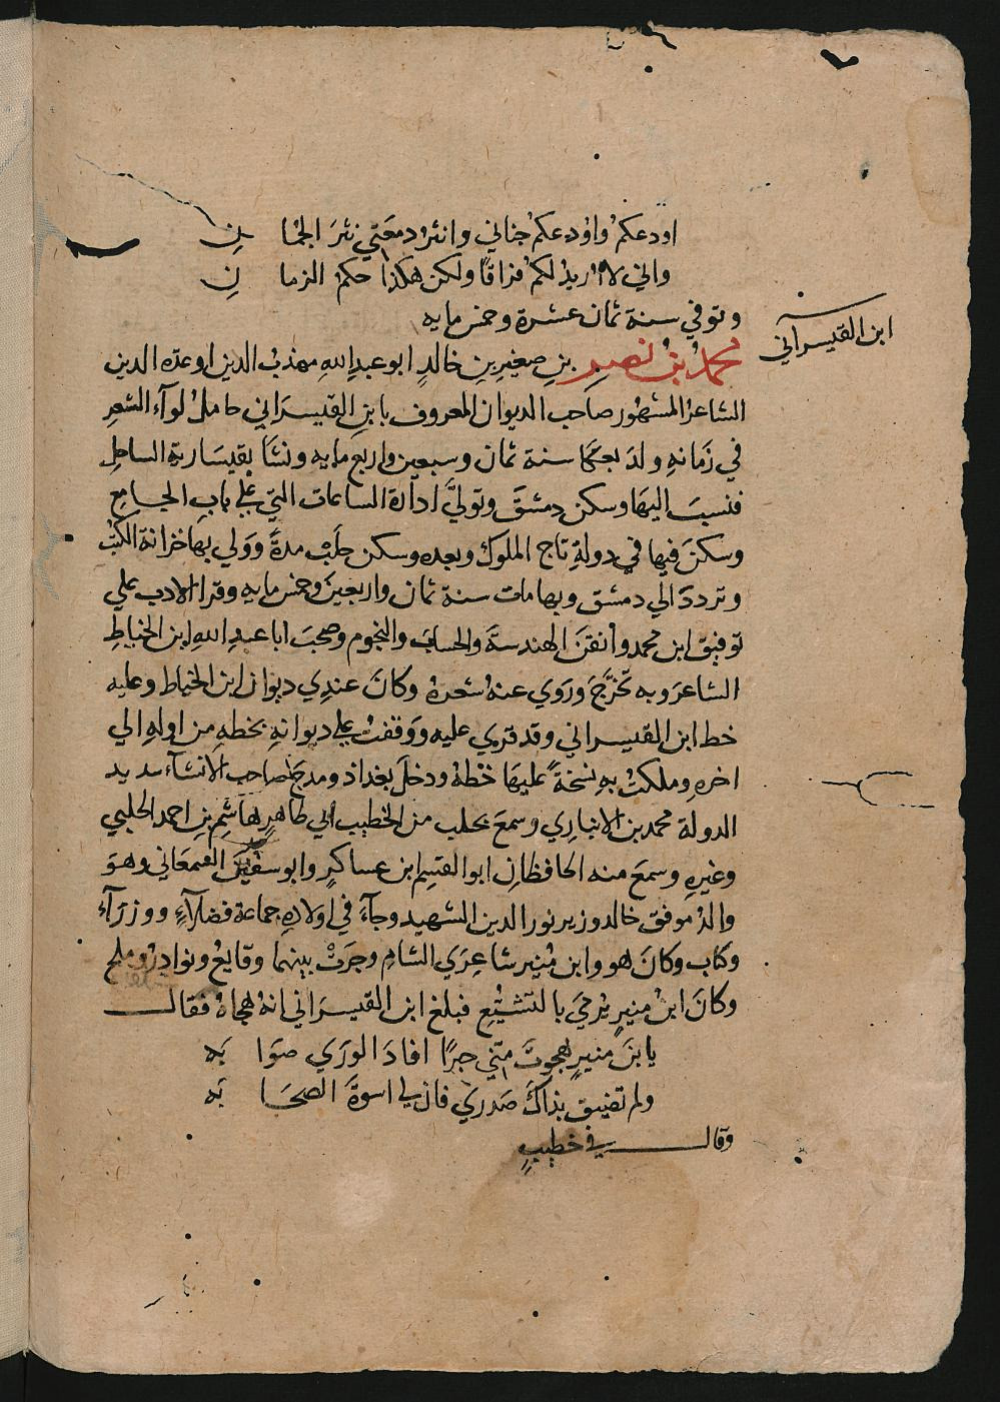 اودعكم واودعكم جناني وانثر دمعتي نثر الجمان
واني لا اريد لكم فراقا ولكن هكذا حكم الزمان
وتوفي سنة ثمان عشرة وخمس مايه
ابن القيسراني
محمد بن نصر بن صغير بن خالد ابو عبد الله مهذب الدين او عده الدين
الشاعر المشهور صاحب الديوان المعروف بابن القيسراني حامل لوآء الشعر
في زمانه ولد بعكا سنة ثمان وسبعين واربع مايه ونشا بقيسارية الساحل
فنسب اليها وسكن دمشق وتولى ادارة الساعات التي على باب الجامع
وسكن فيها في دولة تاج الملوك وبعده وسكن حلب مدة وولي بها خزانة الكتب
وتردد الي دمشق وبها مات سنة ثمان واربعين وخمس مايه وقرا الادب علي
توفيق ابن محمد واتقن الهندسة والحساب والنجوم وصحب ابا عبد الله ابن الخياط
الشاعر وبه تخرج وروي عنه شعره وكان عندي ديوان ابن الخياط وعليه
خط ابن القيسراني وقد قري عليه ووقفت على ديوانه بخطه من اوله الي
اخره وملكت به نسخة عليها خطه ودخل بغداد ومدح صاحب الانشآء سديد
الدولة محمد بن الانباري وسمع بحلب من الخطيب ابي طاهر هاشم بن احمد الحلبي
وغيره وسمع منه الحافظان ابو القسم ابن عساكر وابو السمعاني وهو
والد موفق خالد وزير نور الدين الشهيد وجآء في اولاده جماعة فضلآء ووزرآء
وكتاب وكان هو وابن منير شاعري الشام وجرت بينهما وقايع ونوادر وملح
وكان ابن منير يرمي بالتشيع فبلغ ابن القيسراني انه هجاه فقال
يا بن منير هجوت مني حبرا افاد الوري صوابه
ولم تضيق بذاك صدري فان لي اسوة الصحابه
وقال في خطيب